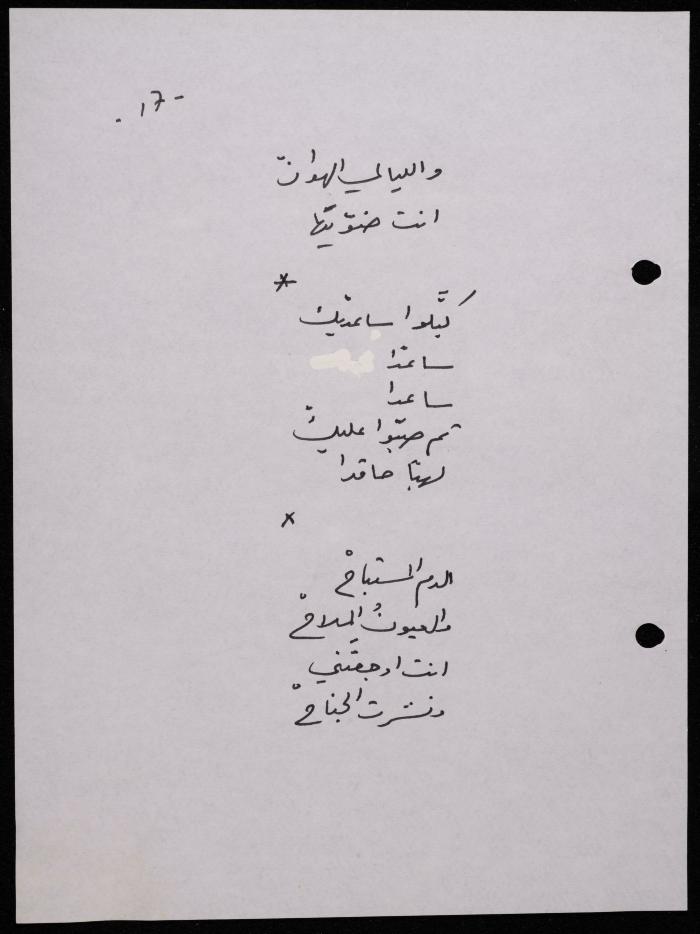 - 17 -
والليالي الهوانْ
انت ضوّيتَها
*
كبَّلوا ساعديْكْ
ساعدًا
ساعدا
ثم صبّوا عليكْ
لهبًا حاقدا
×
الدم المستباحْ
والعيونُ المِلاحْ
انت اوجعتَني
ونشرت الجناحْ